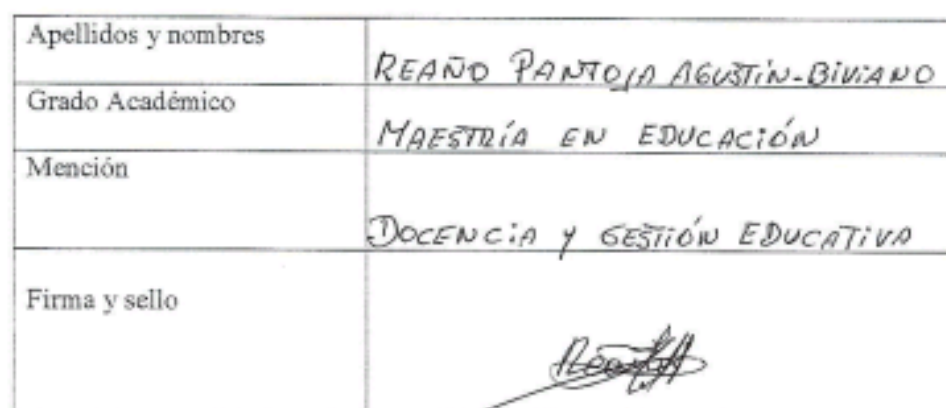 Apellidos y nombres
REAÑO PANTOJA AGUSTÍN-BIVIANO
Grado Académico
MAESTRÍA EN EDUCACIÓN
Mención
DOCENCIA Y GESTIÓN EDUCATIVA
Firma y sello